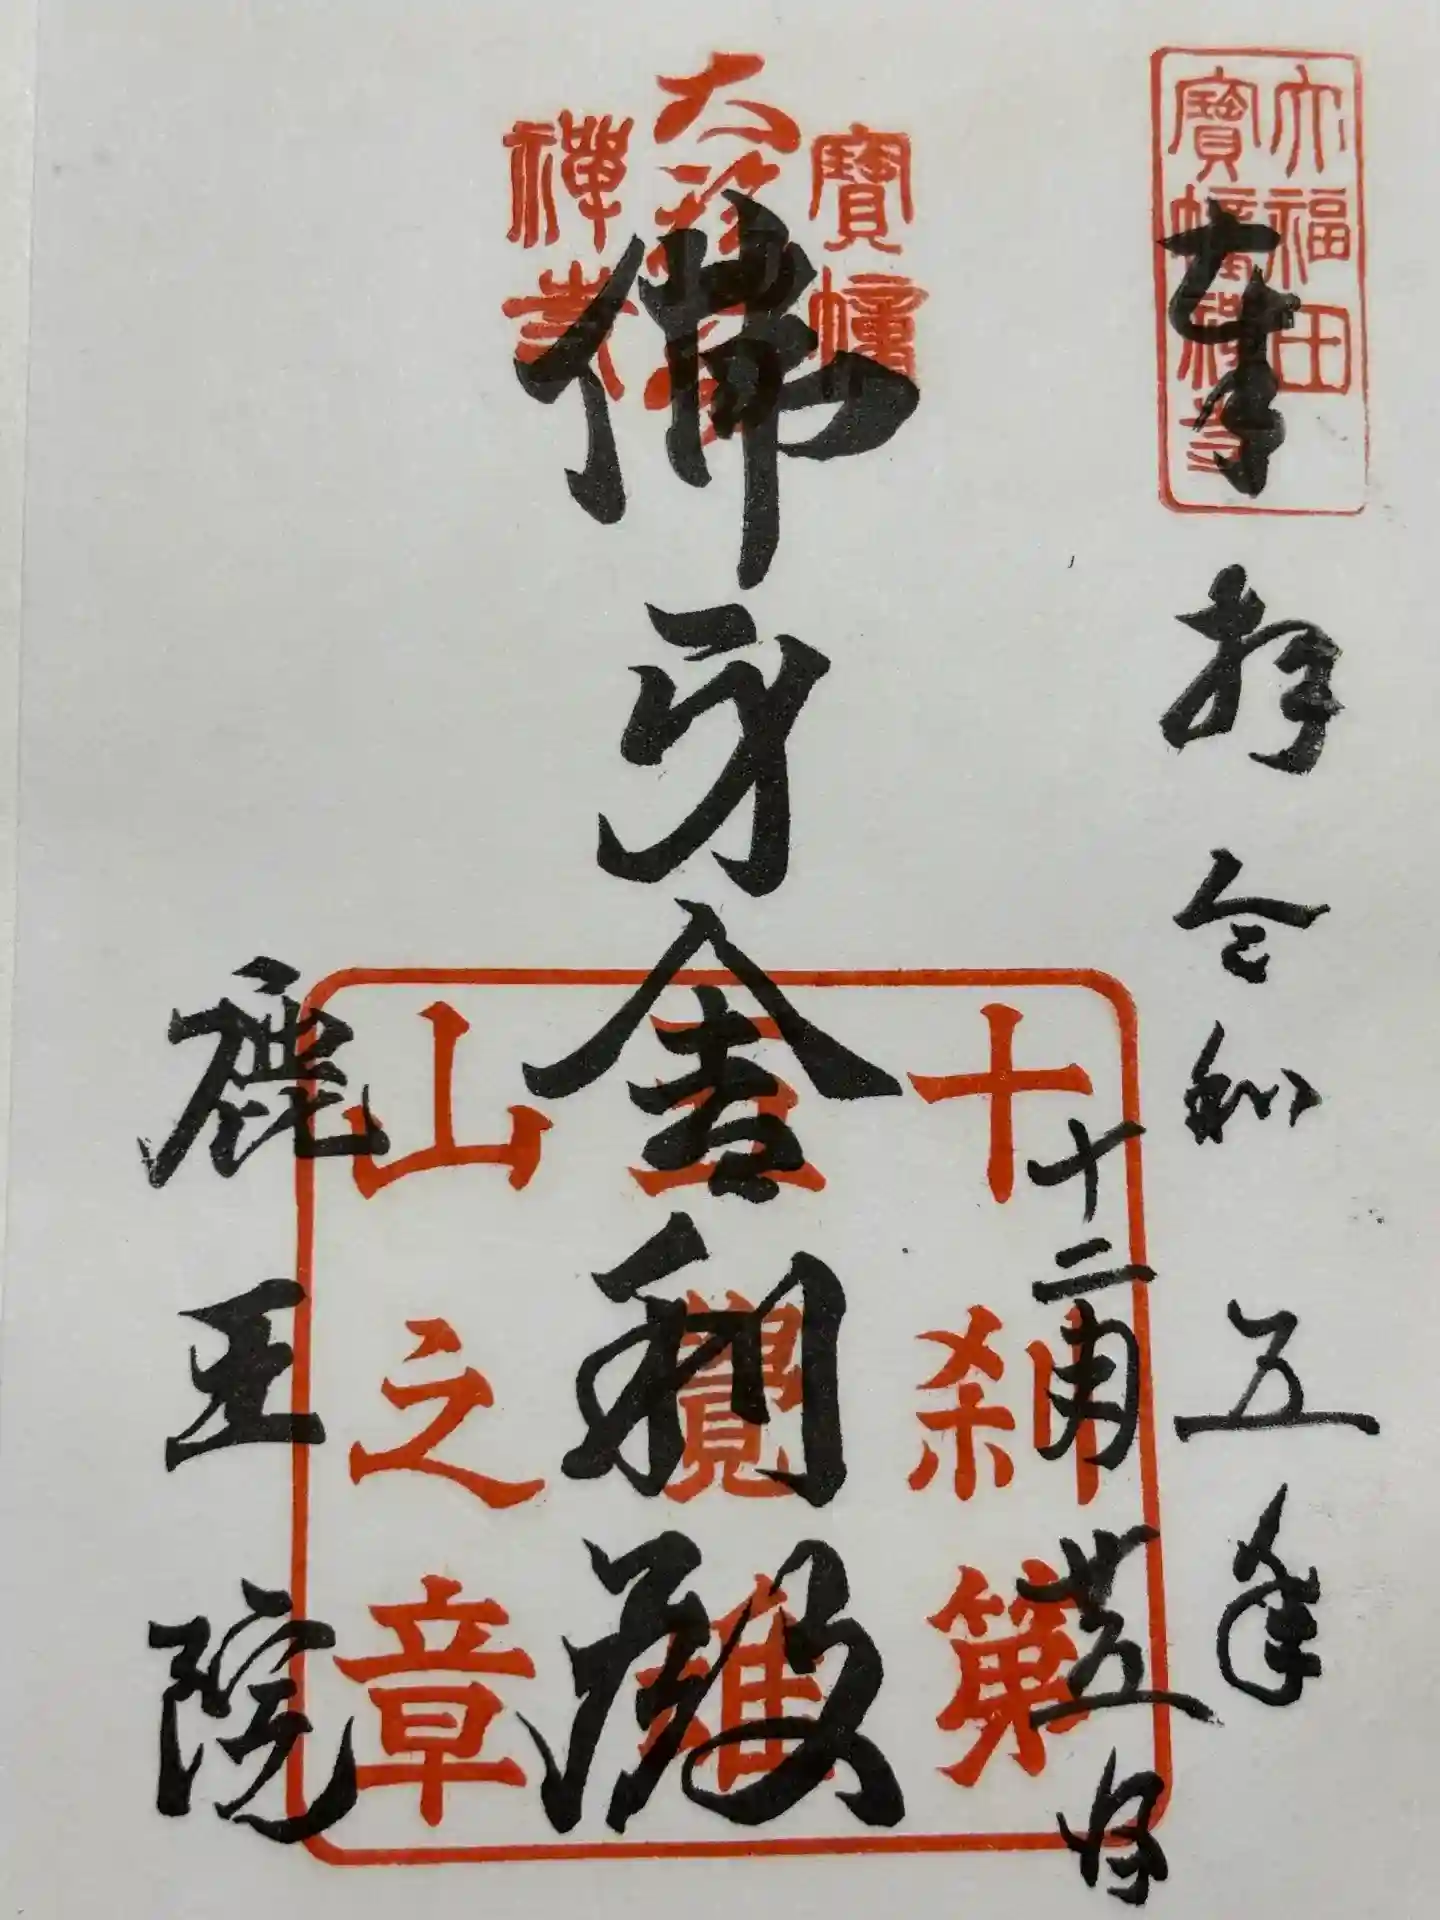 大福田
寳幢禪寺
奉拝 令和五年
十二月廿五日
寳幢
大
禪寺
佛牙舎利殿
十刹第
五覺雄
山之章
鹿王院